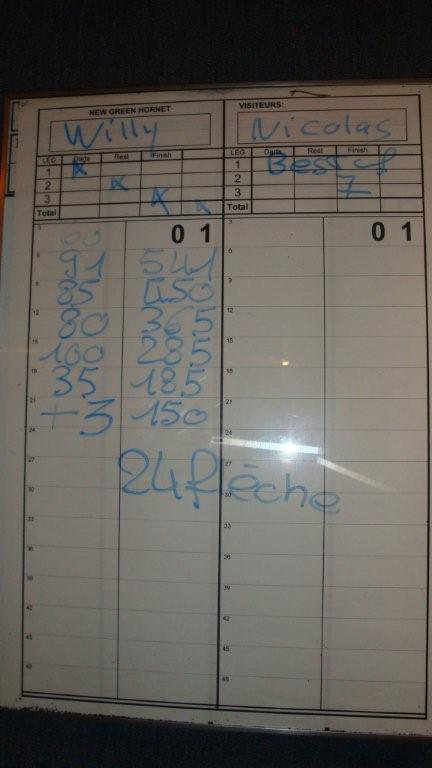 NEW GREEN HORNET VISITEURS:
Willy Nicolas
LEG Darts Rest Finish LEG Darts Rest Finish
1 x 1 Best of
2 x 2 7
3 x x 3
Total Total
3 60 0 1 3 0 1
6 91 541 6
9 85 450 9
12 80 365 12
15 100 285 15
18 35 185 18
21 +3 150 21
24 24
27 24 flèche 27
30 30
33 33
36 36
39 39
42 42
45 45
48 48